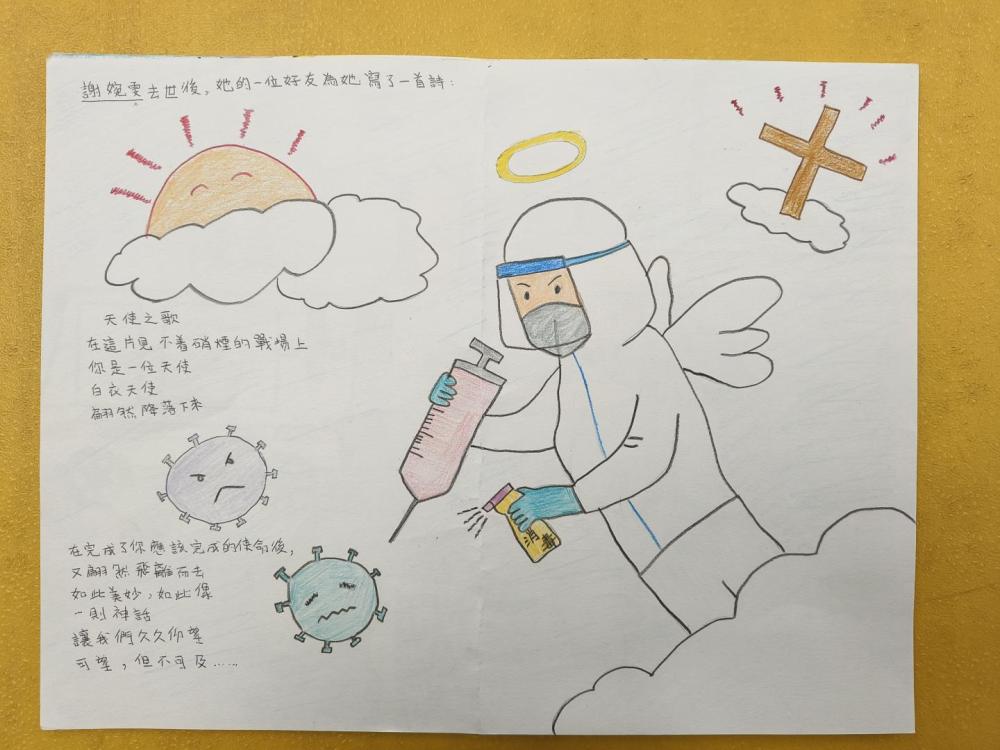 謝婉雯去世後，她的一位好友為她寫了一首詩：
天使之歌
在這片見不着硝煙的戰場上
你是一位天使
白衣天使
翩然降落下來
在完成了你應該完成的使命後，
又翩然飛離而去
如此美妙，如此像
一則神話
讓我們久久仰望
可望，但不可及……
消毒